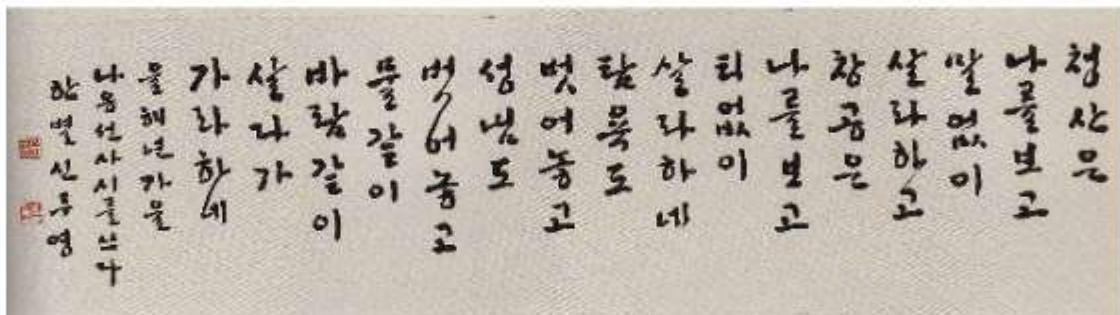 청산은
나를 보고
말없이
살라하고
창공은
나를 보고
티없이
살라하네
탐욕도
벗어놓고
성냄도
벗어놓고
물같이
바람같이
살다가
가라하네
을해년가을
나옹선사시를쓰다
한별신두영